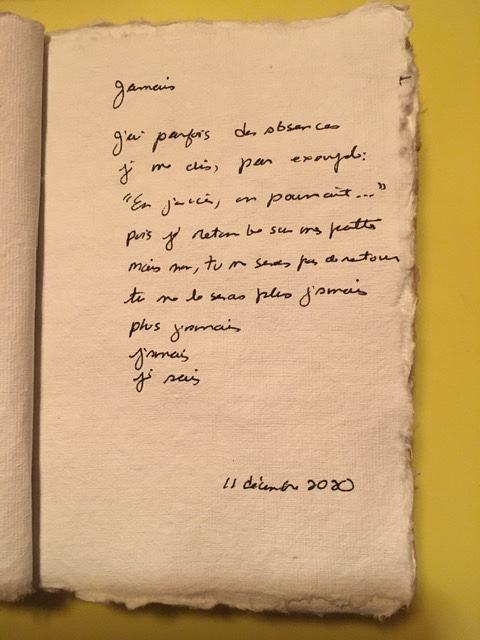 Jamais
J'ai parfois des absences
je me dis, par exemple:
"En janvier, on pourrait..."
puis je retombe sur mes pattes
mais non, tu ne seras pas de retour
tu ne le seras plus jamais
plus jamais
jamais
je sais
11 décembre 2020